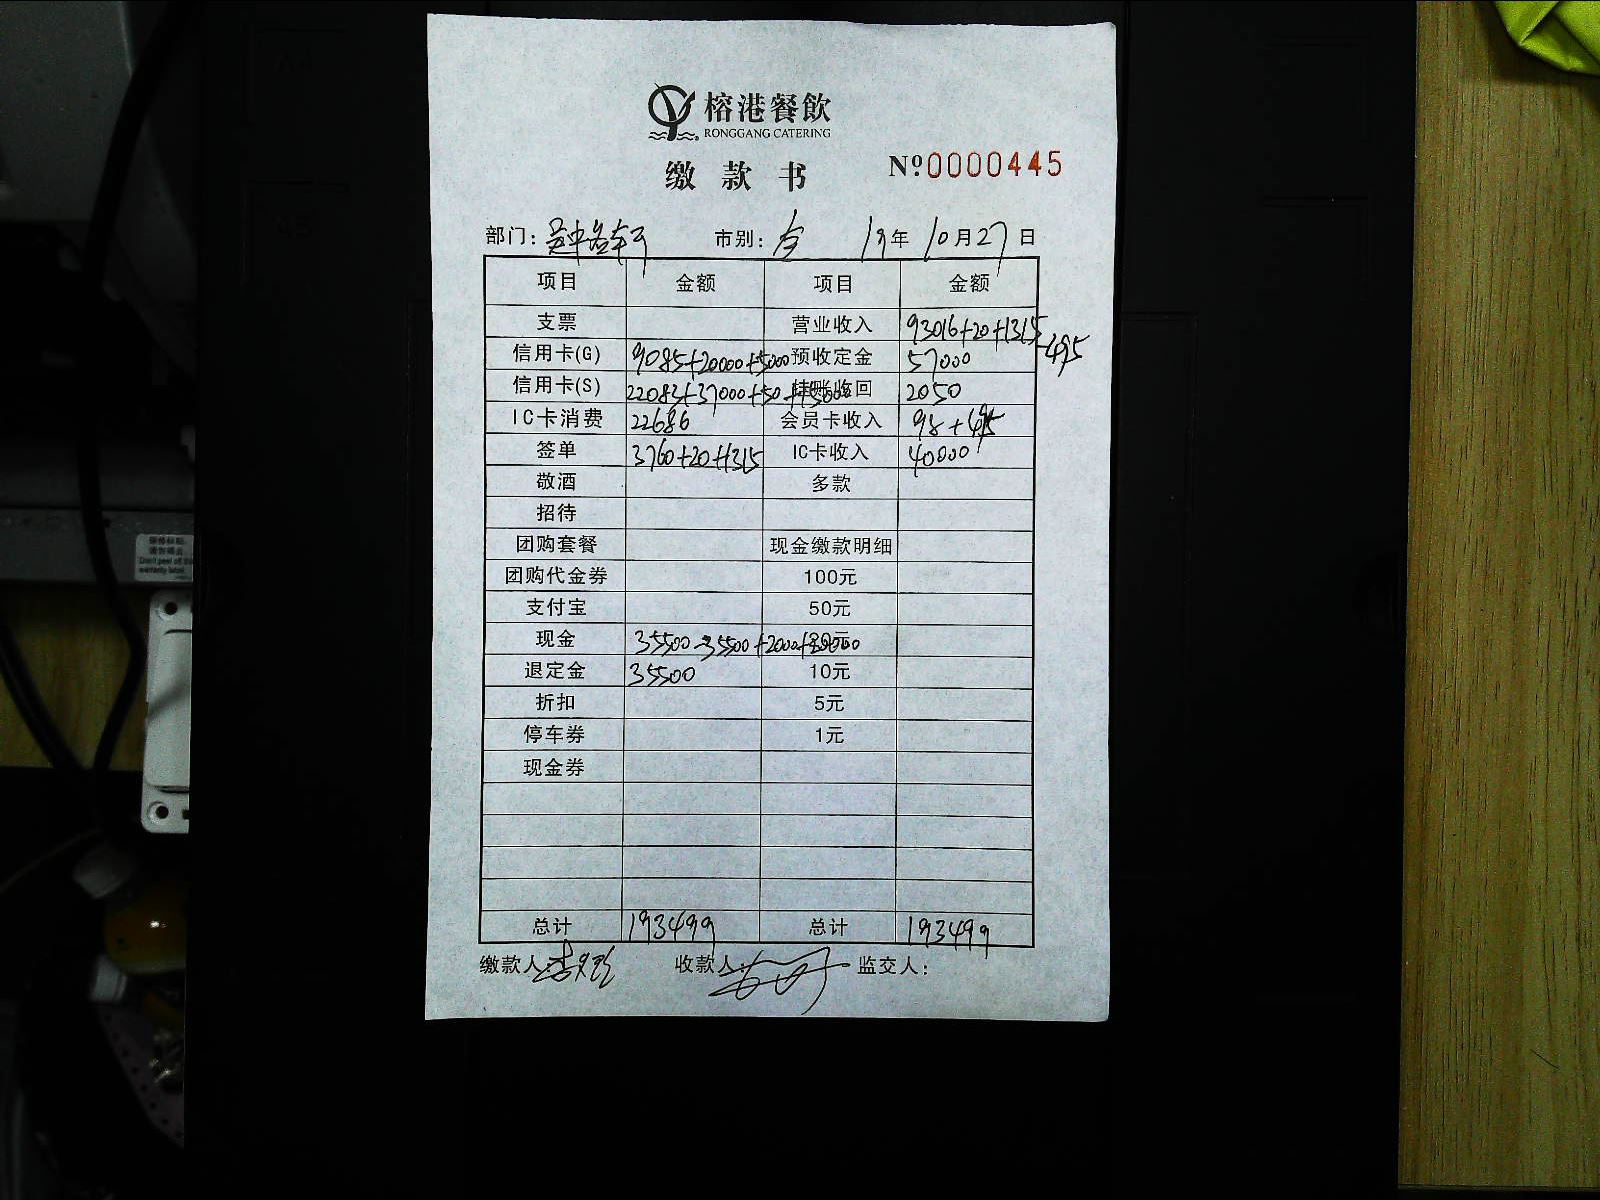 榕港餐飲
RONGGANG CATERING
缴款书 Nº0000445
部门: 市别: 全 19年 10月27日
项目 金额 项目 金额
支票 营业收入 93016+20+1315-495
信用卡(G) 9085+20000+5000 预收定金 57000
信用卡(S) 22083+37000+50+15000 挂账收回 2050
IC卡消费 22686 会员卡收入 98+495
签单 3760+20+1315 IC卡收入 40000
敬酒 多款
招待
团购套餐 现金缴款明细
团购代金券 100元
支付宝 50元
现金 35500-35500+2000+20000 20元
退定金 35500 10元
折扣 5元
停车券 1元
现金券
总计 193499 总计 193499
缴款人: 收款人: 监交人: